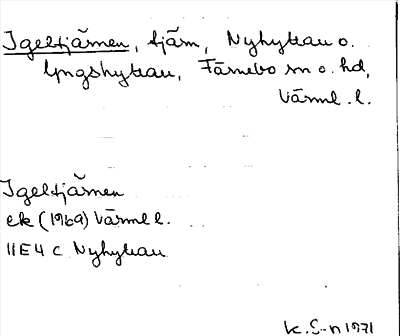 Igeltjärnen, tjärn, Nyhyttan o.
Lyngshyttan, Färnebo sn o. hd,
Värml. l.
Igeltjärnen
ek (1969) Värml l.
11E4 c Nyhyttan
K. E-n 1971